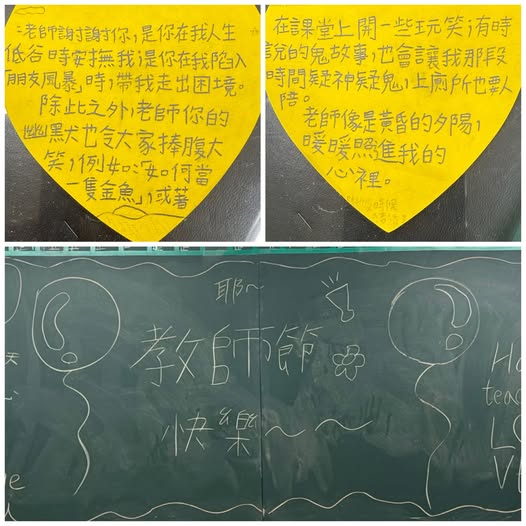 老師謝謝你,是你在我人生
低谷時安撫我;是你在我陷入
「朋友風暴」時,帶我走出困境。
除此之外,老師你的
幽默也令大家捧腹大
笑,例如:如何當
一隻金魚,或著
在課堂上開一些玩笑;有時
說的鬼故事,也會讓我那段
時間疑神疑鬼,上廁所也要人
陪。
老師像是黃昏的夕陽,
暖暖照進我的
心裡。
耶~
教師節
快樂~~
Ha
teac